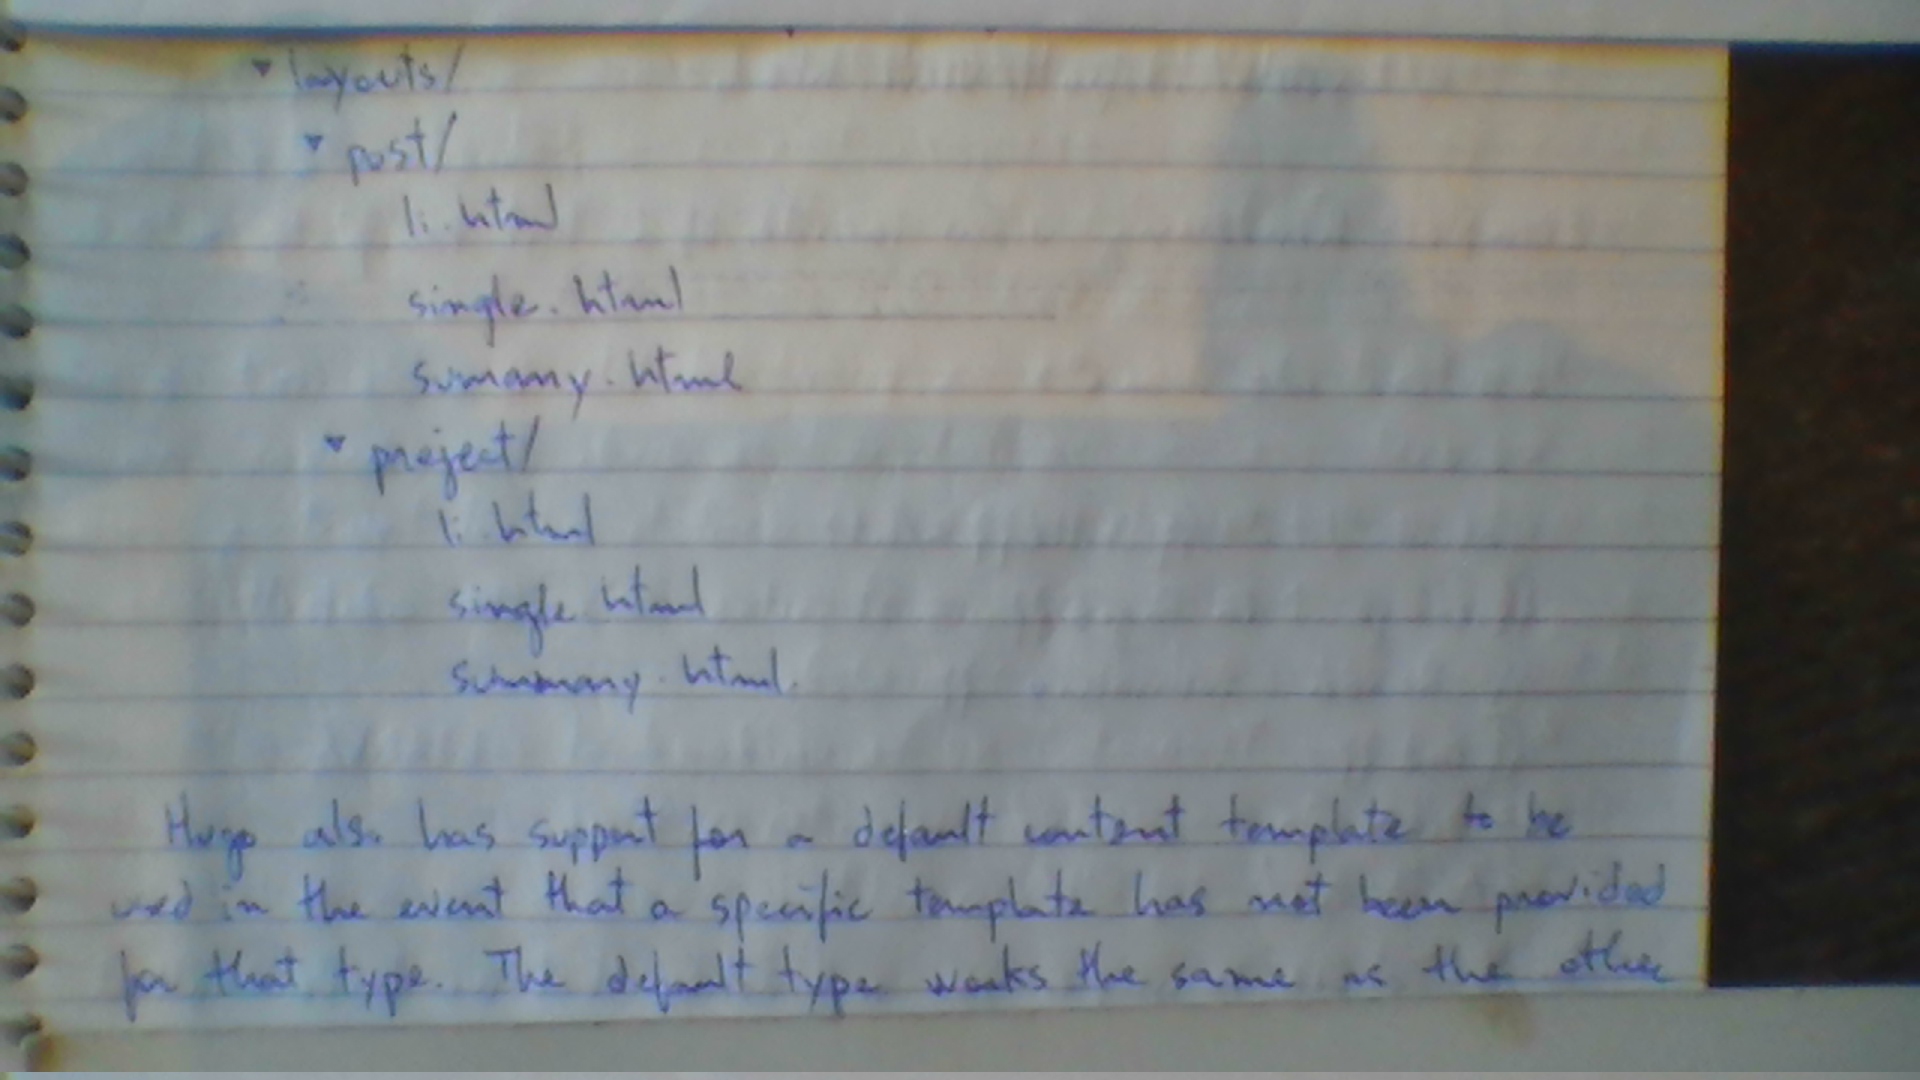 ▾ layouts/
▾ post/
li.html
single.html
summary.html
▾ project/
li.html
single.html
summary.html.
Hugo also has support for a default content template to be
used in the event that a specific template has not been provided
for that type. The default type works the same as the other